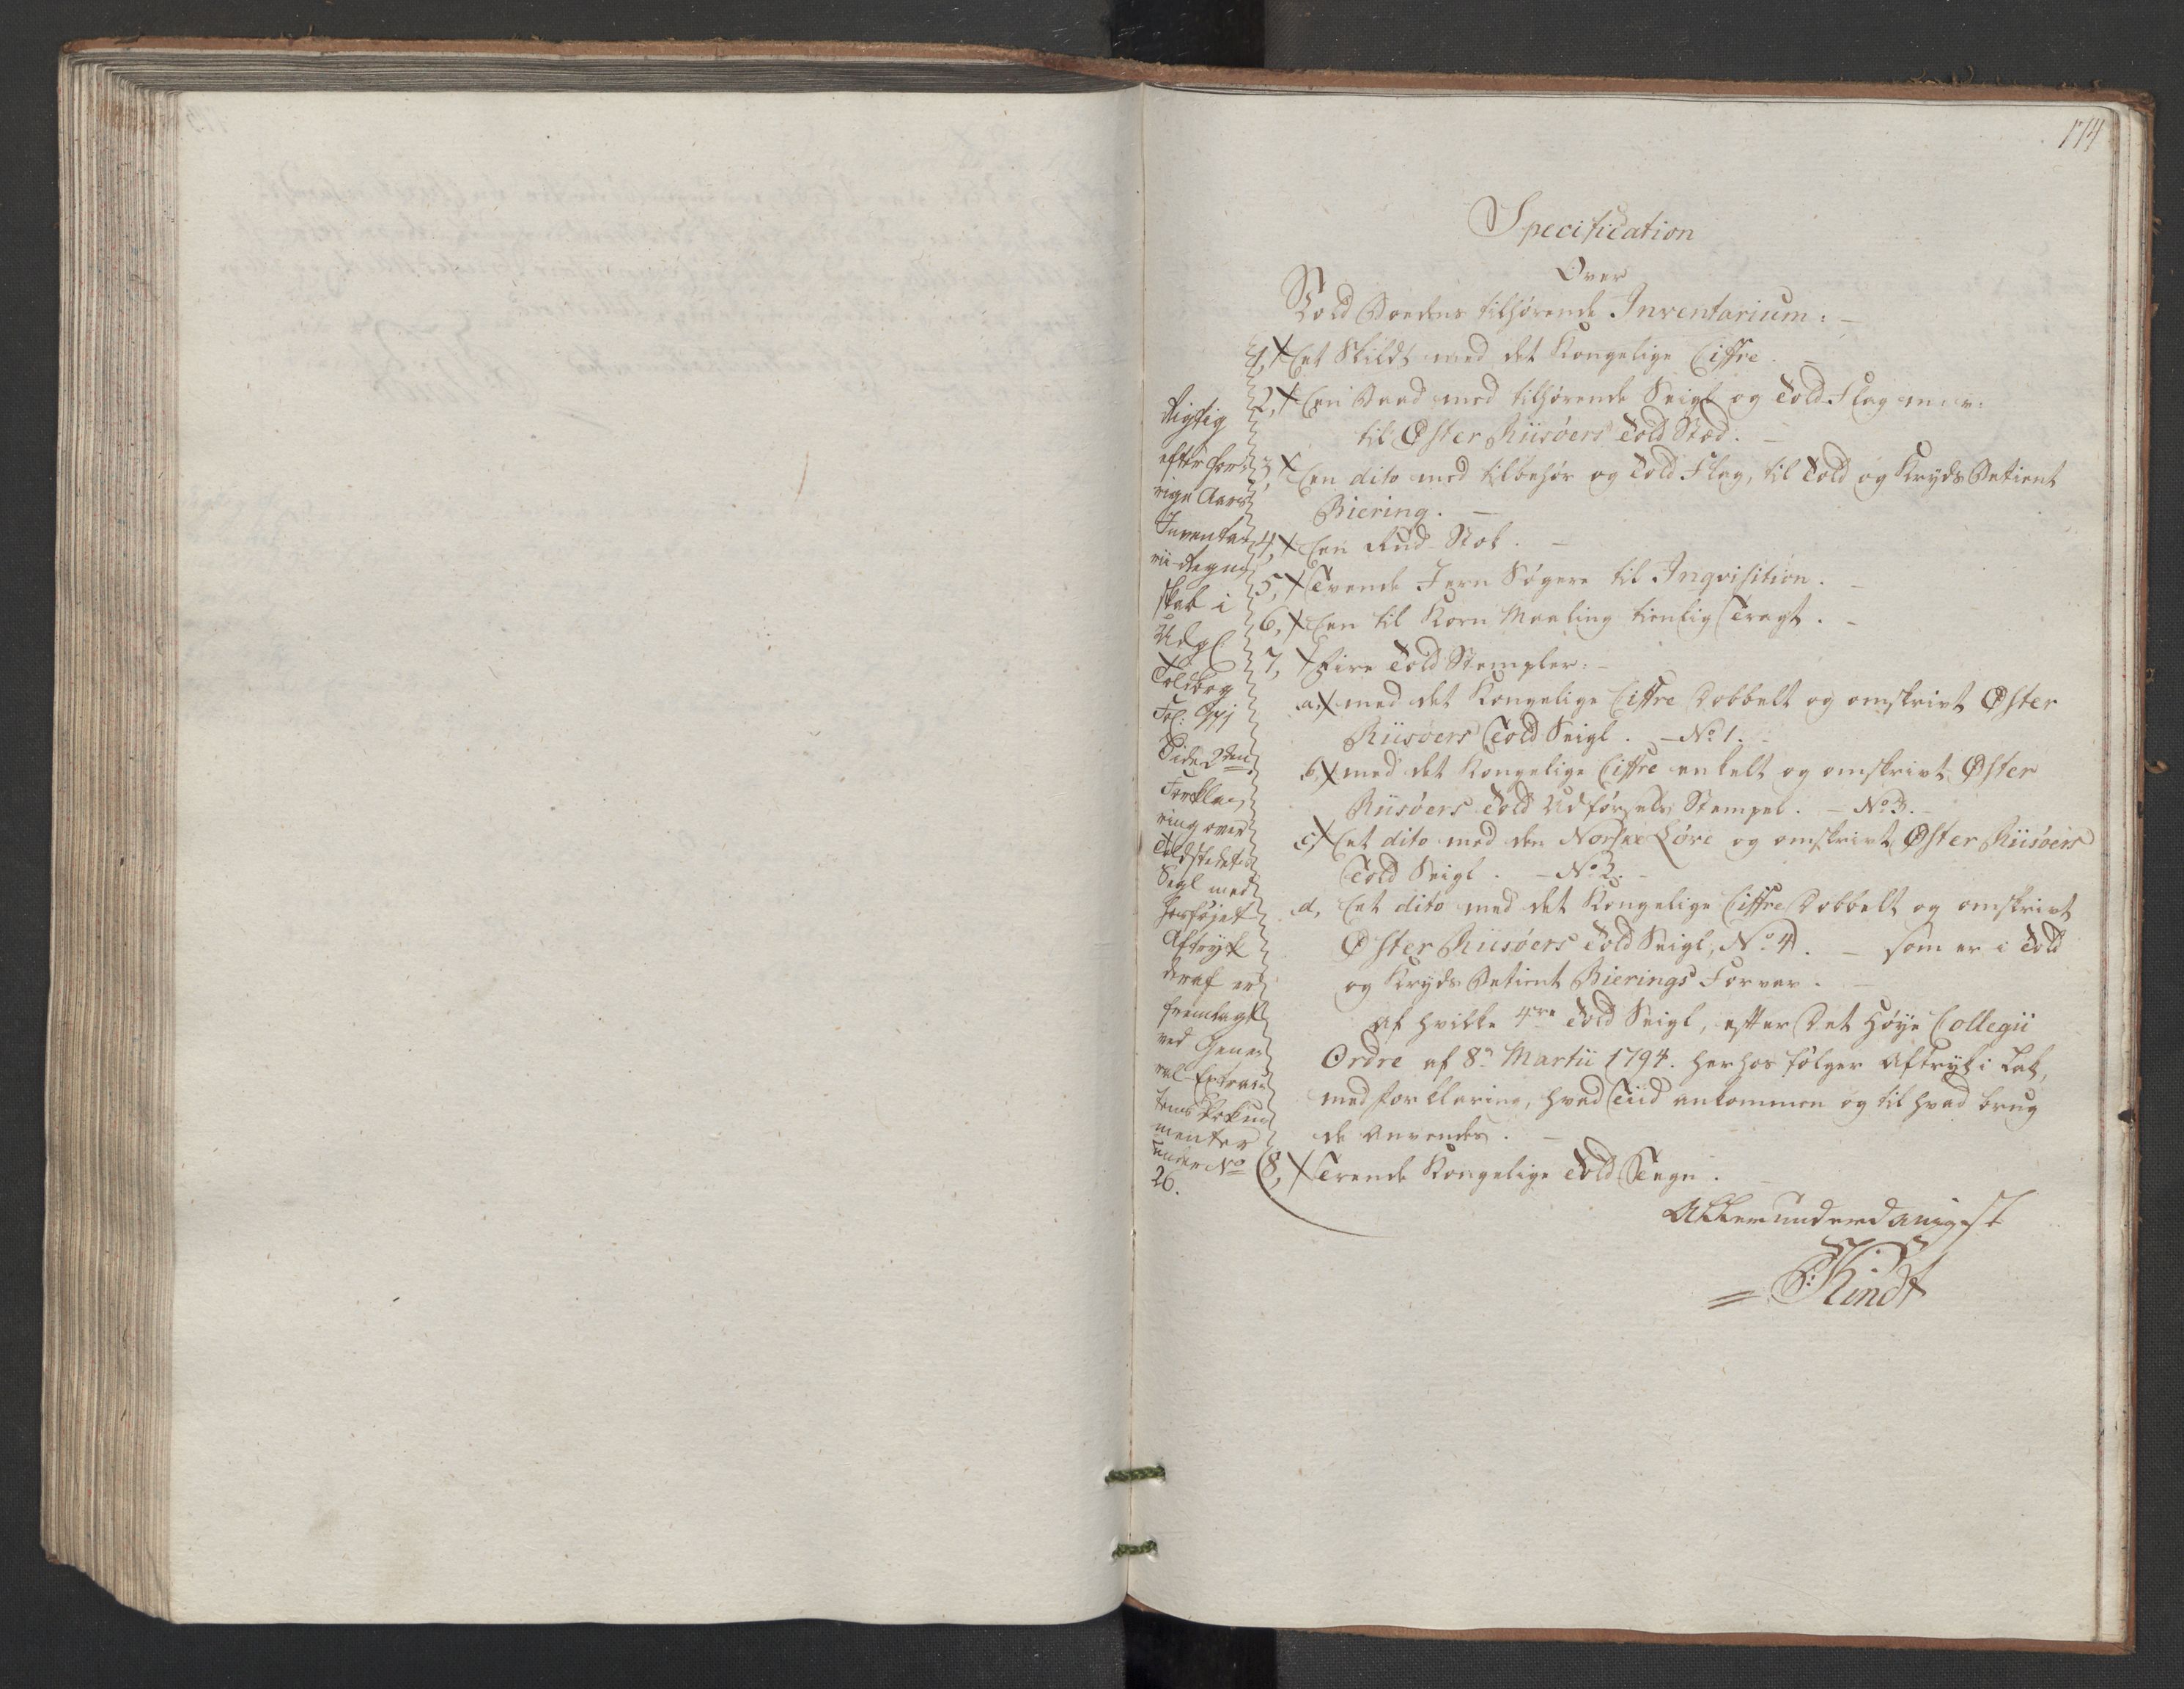 174
Specification
Over
Told Boedens tilhørende Inventarium:
1, Eet Skildt med det Kongelige Ciffre.
2, Een Baad med tilhørende Seigl og Told-Flag
til Øster Riisøers Told Stæd.
3, Een dito med tilbehør og Told Flag, til Told og Kryds Betient
Biering.
4, Een Stok.
5, Tvende Jern Søgere til Inqvisition.
6, Een til Korn Maaling tienlig Tragt.
7, Fire Told Stempler:
a, med det Kongelige Ciffre Dobbelt og omskrivt Øster
Riisøers Told Seigl. No 1.
b, med det Kongelige Ciffre enkelt og omskrivt Øster
Riisøers Told Udførsels Stempel. No 3.
c, Eet dito med den Norske Løve og omskrivt Øster Riisøers
Told Seigl. No 2.
d, Eet dito med det Kongelige Ciffre Dobbelt og omskrivt
Øster Riisøers Told Seigl, No 4. som er i Told
og Kryds Betient Bierings Forvar.
Af hvilke 4re Told Seigl, efter Det Høye Collegii
Ordre af 8n Martii 1794. herhos følger Aftryk i Lak,
med forklaring, hvad Tiid ankommen og til hvad brug
de anvendes.
8, Trende Kongelige Told Tegn.
Allerunderdanigst
Kindt
Rigtig
efter for-
rige Aars
Inventa-
rii-Regn-
skab i
Toldbog
Fol:
Side 2den
Forkla-
ring over
Toldstedets
Segl med
hosføjet
Aftryk
deraf er
fremlagt
ved Gene-
ral-Extrac-
tens Doku-
menter
under No
26.